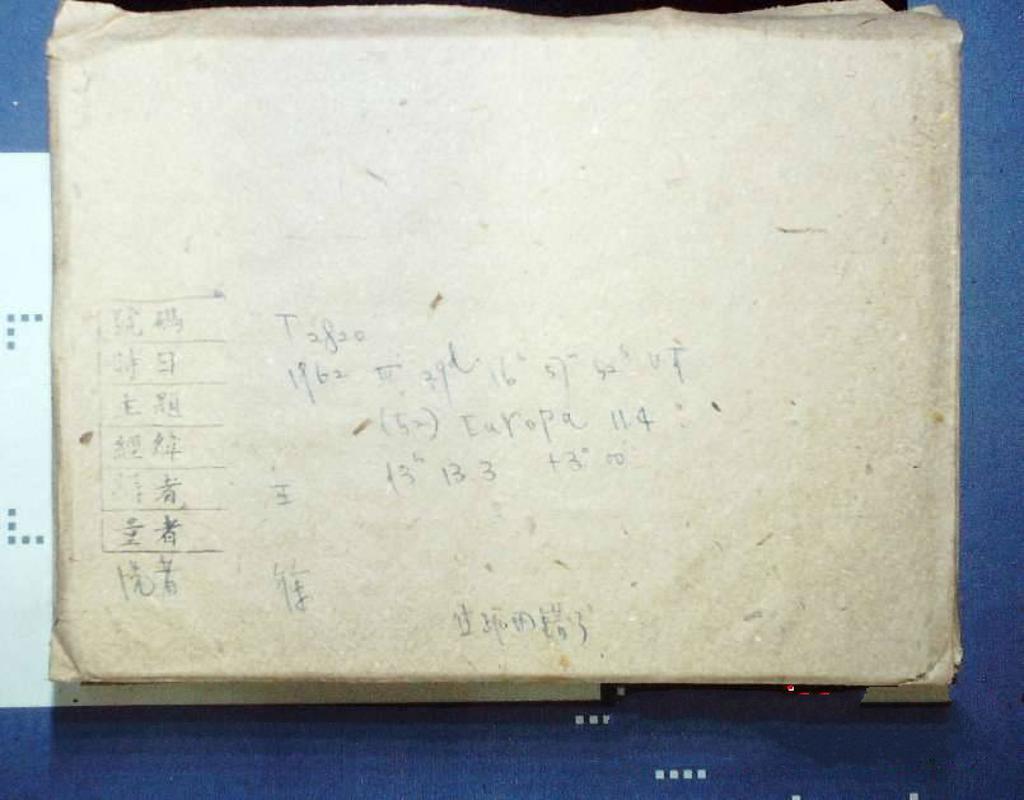 號碼 T 2820
時日 1962 III 29d 16h 57m 52s UT
主題 (52) Europa 114
經緯 13h 13 3 +3° 00'
者 王
量者
洗者 徐
错了